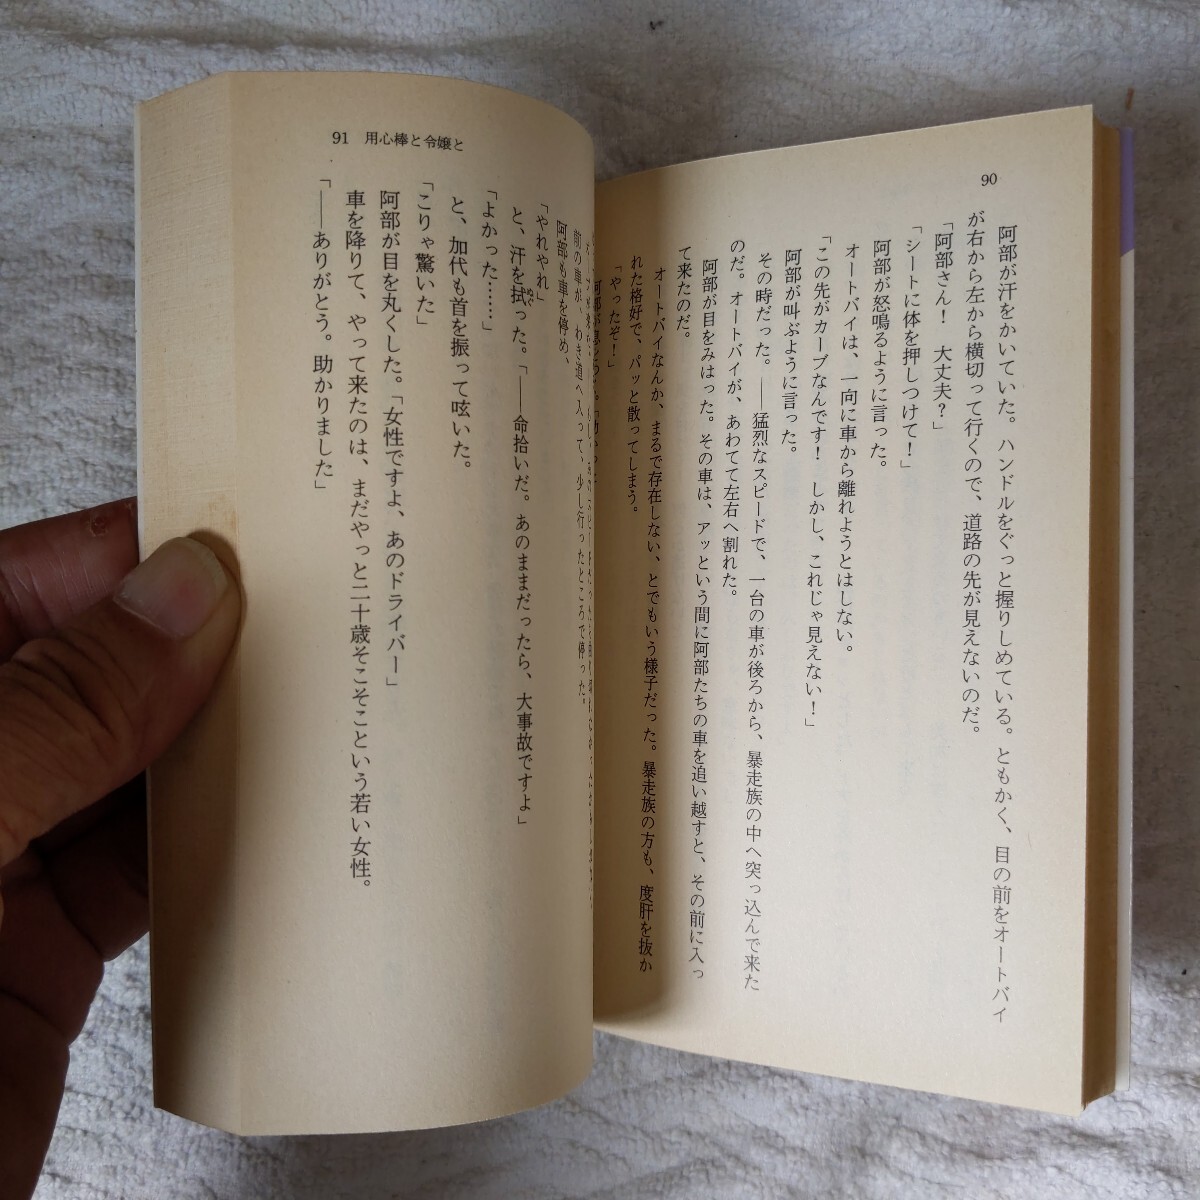 90
阿部が汗をかいていた。ハンドルをぐっと握りしめている。ともかく、目の前をオートバイ
が右から左から横切って行くので、道路の先が見えないのだ。
「阿部さん！　大丈夫？」
「シートに体を押しつけて！」
阿部が怒鳴るように言った。
オートバイは、一向に車から離れようとはしない。
「この先がカーブなんです！　しかし、これじゃ見えない！」
阿部が叫ぶように言った。
その時だった。――猛烈なスピードで、一台の車が後ろから、暴走族の中へ突っ込んで来た
のだ。オートバイが、あわてて左右へ割れた。
阿部が目をみはった。その車は、アッという間に阿部たちの車を追い越すと、その前に入っ
て来たのだ。
オートバイなんか、まるで存在しない、とでもいう様子だった。暴走族の方も、度肝を抜か
れた格好で、パッと散ってしまう。
「やったぞ！」
91　用心棒と令嬢と
前の車が、わき道へ入って、少し行ったところで停った。
阿部も車を停め、
「やれやれ」
と、汗を拭った。「――命拾いだ。あのままだったら、大事故ですよ」
「よかった……」
と、加代も首を振って呟いた。
「こりゃ驚いた」
阿部が目を丸くした。「女性ですよ、あのドライバー」
車を降りて、やって来たのは、まだやっと二十歳そこそこという若い女性。
「――ありがとう。助かりました」